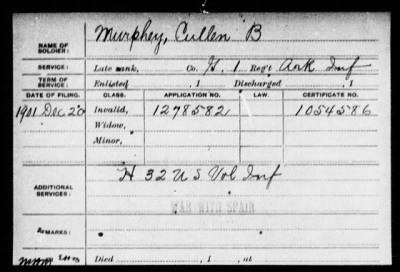 NAME OF SOLDIER: Murphey, Cullen B
SERVICE: Late rank, Co. G. 1 Reg't Ark Inf
TERM OF SERVICE: Enlisted , 1 Discharged , 1
DATE OF FILING. CLASS. APPLICATION NO. LAW. CERTIFICATE NO.
1901 Dec 20 Invalid, 1278582 1054586
Widow,
Minor,
ADDITIONAL SERVICES: H 32 U S Vol Inf
WAR WITH SPAIN
REMARKS:
Died , 1 , at